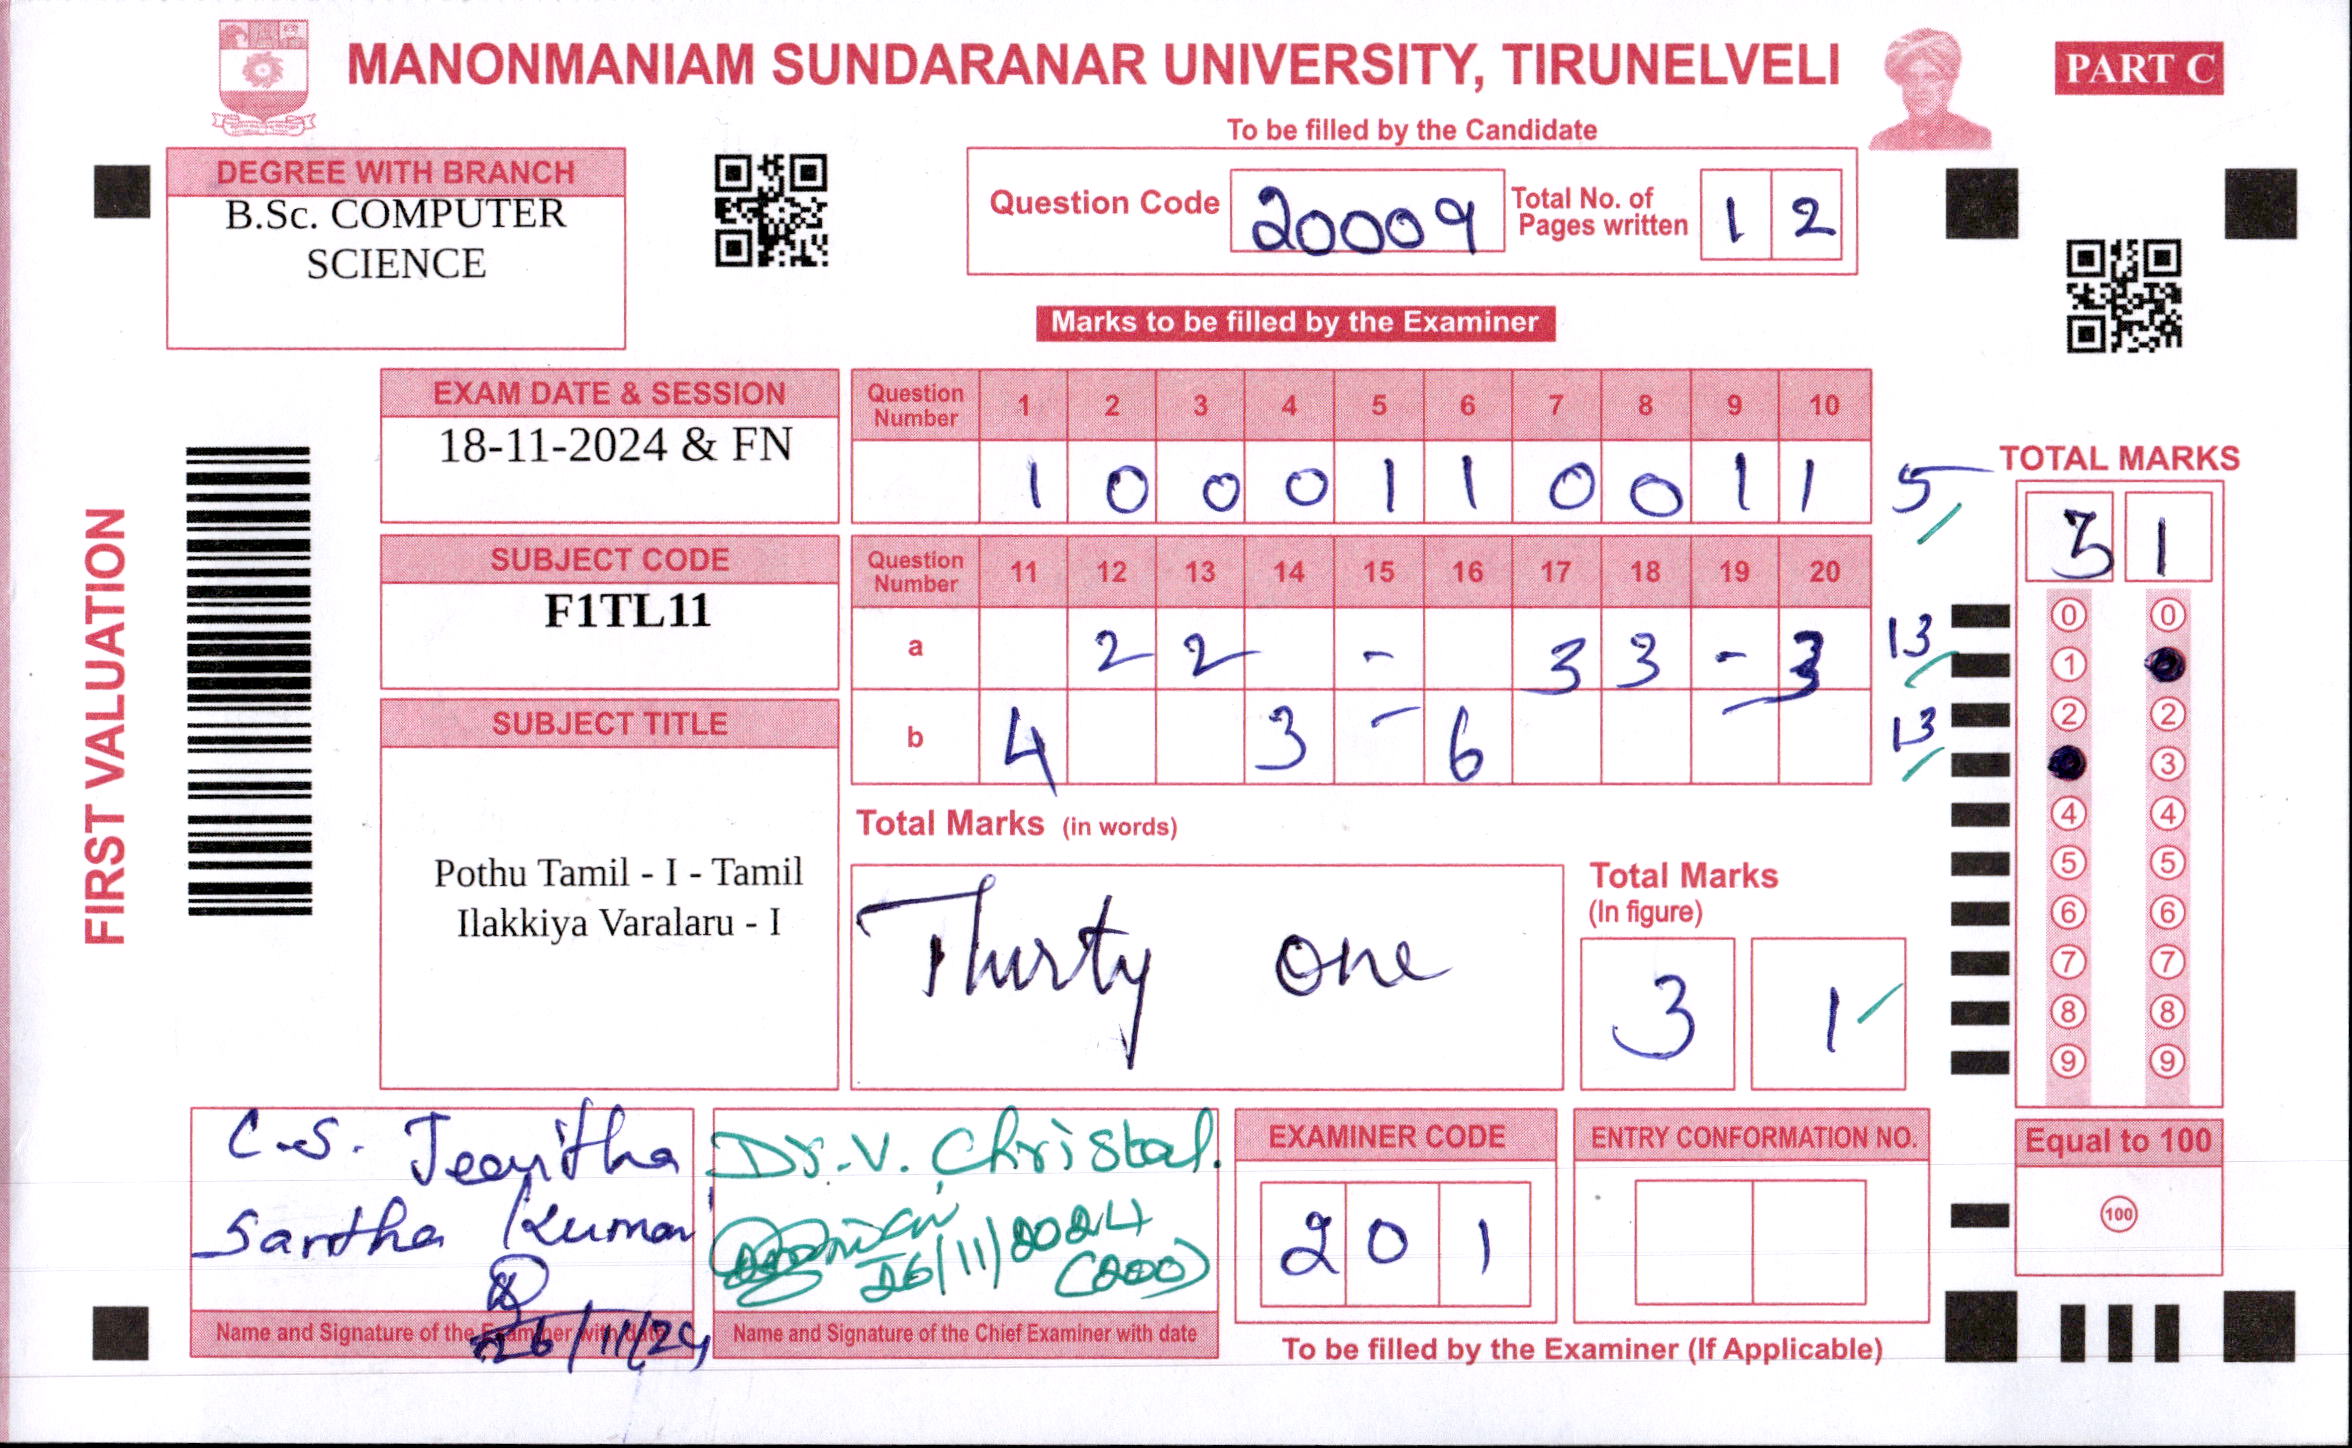 MANONMANIAM SUNDARANAR UNIVERSITY, TIRUNELVELI
PART C
To be filled by the Candidate
DEGREE WITH BRANCH
B.Sc. COMPUTER
SCIENCE
Question Code 20009 Total No. of Pages written 1 2
Marks to be filled by the Examiner
FIRST VALUATION
EXAM DATE & SESSION
18-11-2024 & FN
SUBJECT CODE
F1TL11
SUBJECT TITLE
Pothu Tamil - I - Tamil
Ilakkiya Varalaru - I
Question Number 1 2 3 4 5 6 7 8 9 10
1 0 0 0 1 1 0 0 1 1 5
Question Number 11 12 13 14 15 16 17 18 19 20
a 2 2 - 3 3 - 3 13
b 4 3 - 6 13
Total Marks (in words)
Thirty one
Total Marks
(In figure)
3 1
TOTAL MARKS
3 1
0 0
1
2 2
3
4 4
5 5
6 6
7 7
8 8
9 9
Equal to 100
100
C.S. Jeovitha
Santha Kumar
26/11/24
Name and Signature of the Examiner with date
Dr. V. Christal.
26/11/2024
(200)
Name and Signature of the Chief Examiner with date
EXAMINER CODE
2 0 1
ENTRY CONFORMATION NO.
To be filled by the Examiner (If Applicable)